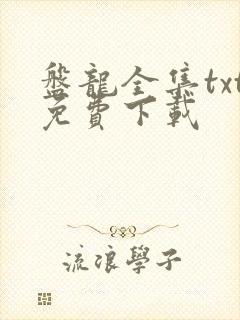 盤龍全集txt
免費下載
流浪學子